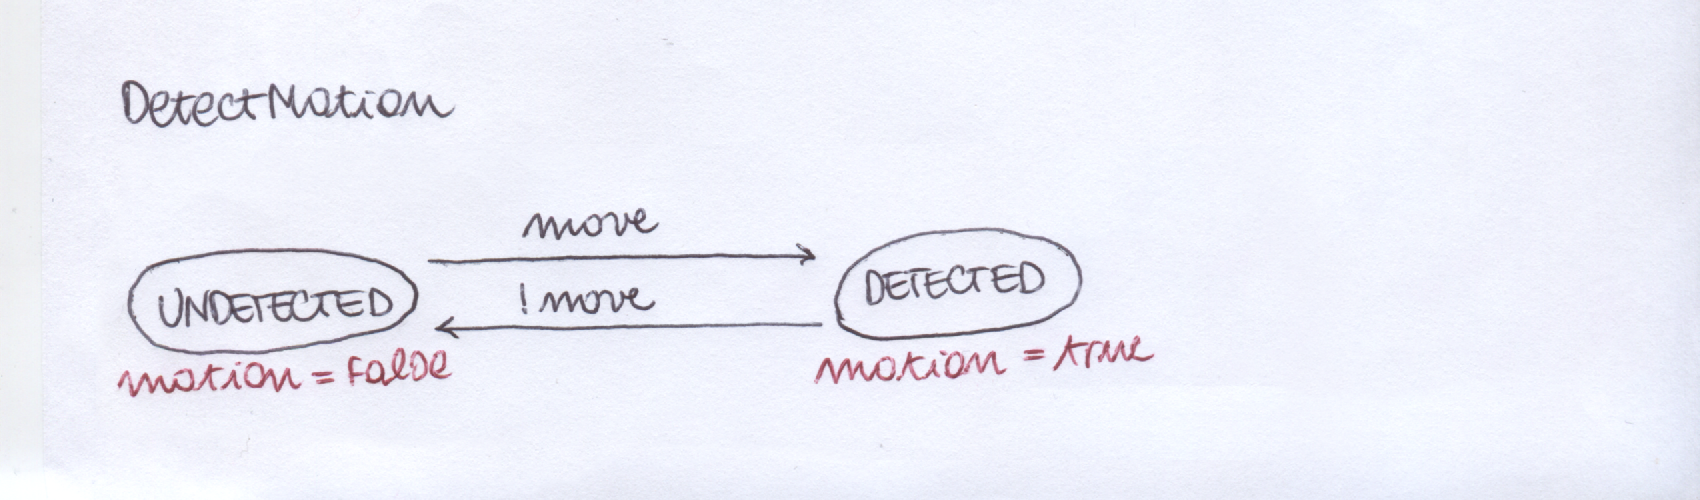 DetectMotion
move
UNDETECTED
DETECTED
!move
motion = false
motion = true